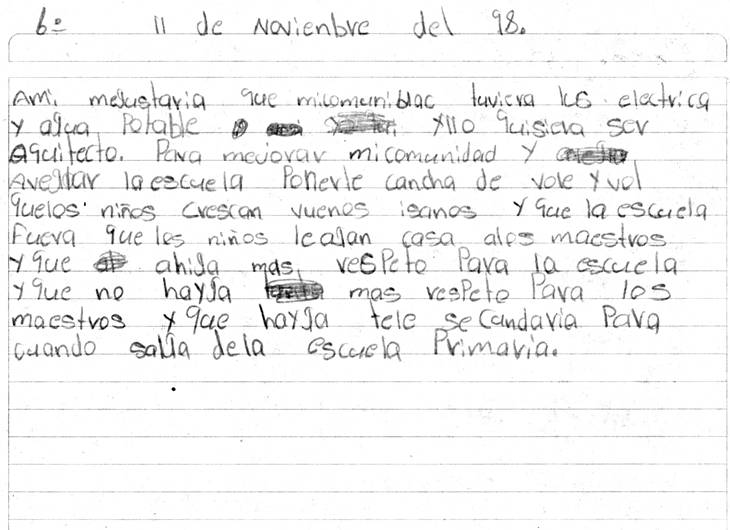 6º 11 de Novienbre del 98.
Ami megustaria que micomunidac tuviera lus electrica
y agua Potable yllo quisiera ser
Aquitecto. Para mejorar micomunidad y
Aveglar la escuela Ponerle cancha de vole y vol
quelos niños crescan vuenos isanos y que la escuela
Fuera que los niños leagan casa alos maestros
y que ahiga mas respeto Para la escuela
y que no hayga mas respeto Para los
maestros y que hayga tele secundaria Para
cuando salga dela escuela Primaria.